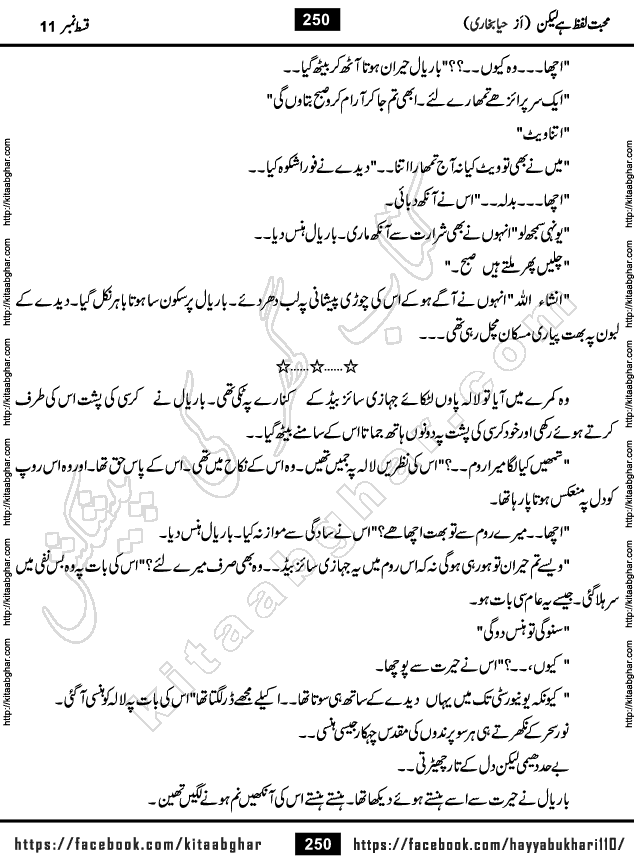 محبت لفظ ہے لیکن (از حیا بخاری)
250
قسط نمبر 11
"اچھا۔۔۔وہ کیوں۔۔؟؟"باریال حیران ہوتا آٹھ کر بیٹھ گیا۔۔
"ایک سرپرائز ھے تمھارے لئے۔ ابھی تم جا کر آرام کرو صبح بتاوں گی"
"اتنا ویٹ"
"میں نے بھی تو ویٹ کیا نہ آج تمھارا اتنا۔۔"دیدے نے فورا شکوہ کیا۔۔
"اچھا۔۔۔بدلہ۔۔"اس نے آنکھ دبائی۔
"یونہی سمجھ لو"انہوں نے بھی شرارت سے آنکھ ماری۔ باریال ہنس دیا۔۔
"چلیں پھر ملتے ہیں صبح۔"
"انشاء اللہ"انہوں نے آگے ہو کے اس کی چوڑی پیشانی پہ لب دھر دئے۔ باریال پر سکون سا ہوتا باہر نکل گیا۔ دیدے کے
لبون پہ بھت پیاری مسکان مچل رہی تھی۔۔۔
☆......☆......☆
وہ کمرے میں آیا تو لالہ پاوں لٹکائے جہازی سائز بیڈ کے کنارے پہ ٹکی تھی۔ باریال نے کرسی کی پشت اس کی طرف
کرتے ہوئے رکھی اور خود کرسی کی پشت پہ دونوں ہاتھ جماتا اس کے سامنے بیٹھ گیا۔۔
"تمھیں کیا لگا میرا روم۔۔؟"اس کی نظریں لالہ پہ جمیں تھیں۔ وہ اس کے نکاح میں تھی۔ اس کے پاس حق تھا۔ اور وہ اس روپ
کو دل پہ منعکس ہوتا پا رہا تھا۔
"اچھا۔۔میرے روم سے تو بھت اچھا ھے؟"اس نے سادگی سے موازنہ کیا۔ باریال ہنس دیا۔
"ویسے تم حیران تو ہو رہی ہوگی نہ کہ اس روم میں یہ جہازی سائز بیڈ۔۔وہ بھی صرف میرے لئے؟"اس کی بات پہ وہ بس نفی میں
سر ہلا گئی۔ جیسے یہ عام سی بات ہو۔
"سنو گی تو ہنس دو گی"
"کیوں،۔۔؟"اس نے حیرت سے پوچھا۔
"کیونکہ یونیورسٹی تک میں یہاں دیدے کے ساتھ ہی سوتا تھا۔۔اکیلے مجھے ڈر لگتا تھا"اس کی بات پہ لالہ کو ہنسی آ گئی۔
نور سحر کے نکھرتے ہی ہر سو پرندوں کی مقدس چہکار جیسی ہنسی۔۔
بے حد دھیمی لیکن دل کے تار چھیڑتی۔۔
باریال نے حیرت سے اسے ہنستے ہوئے دیکھا تھا۔ ہنستے ہنستے اس کی آنکھیں نم ہونے لگیں تھین۔
کتاب گھر کی پیشکش
kitaabghar.com
http://kitaabghar.com http://kitaabghar.com http://kitaabghar.com http://kitaabghar.com http://kitaabghar.com http://kitaabghar.com
http://kitaabghar.com http://kitaabghar.com http://kitaabghar.com http://kitaabghar.com http://kitaabghar.com http://kitaabghar.com
https://facebook.com/kitaabghar
250
https://facebook.com/hayyabukhari110/